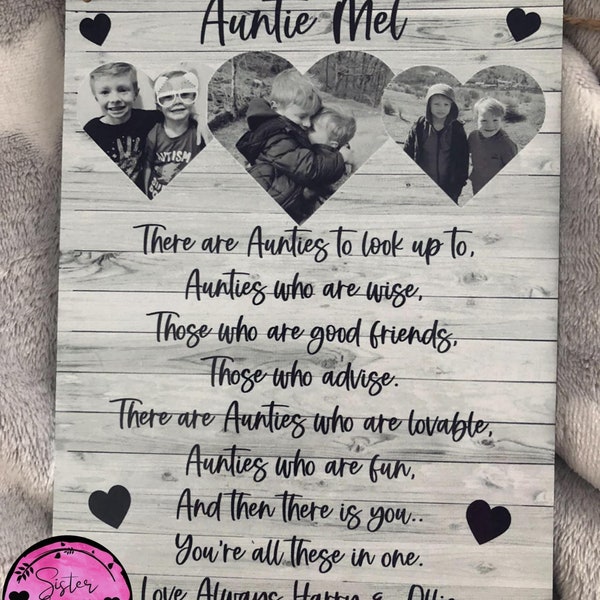 Auntie Mel
AUTISM
There are Aunties to look up to,
Aunties who are wise,
Those who are good friends,
Those who advise.
There are Aunties who are lovable,
Aunties who are fun,
And then there is you..
You're all these in one.
Love Always Harry &
Sister